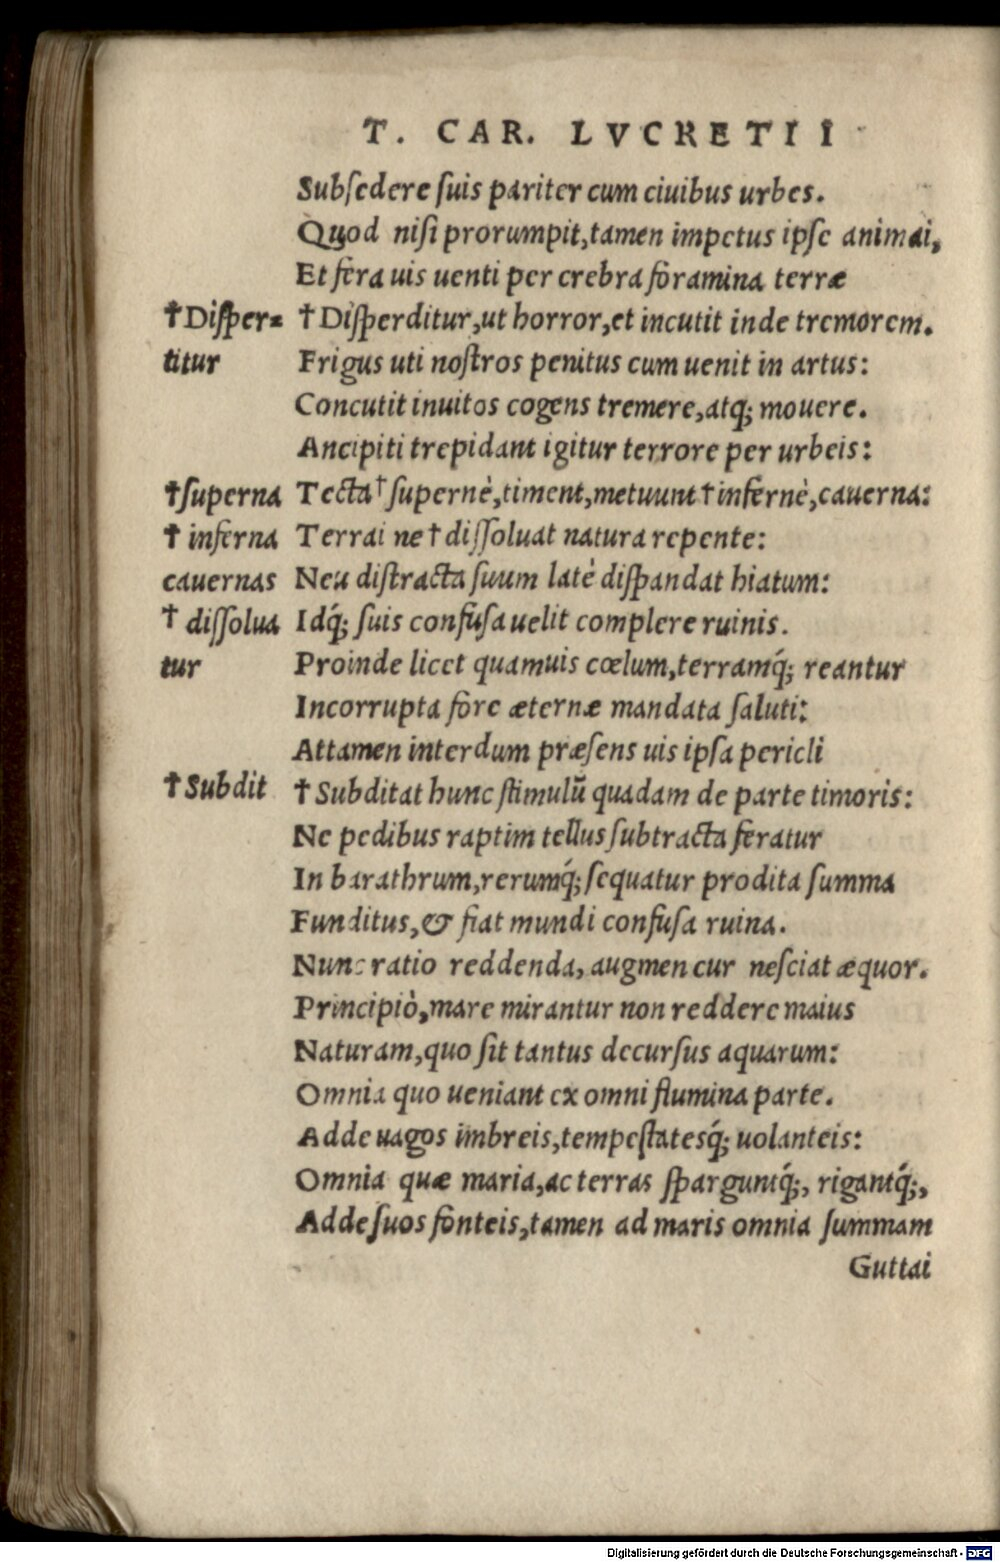 T. CAR. LVCRETII
Subſedere ſuis pariter cum ciuibus urbes.
Quod niſi prorumpit, tamen impetus ipſe animai,
Et fera uis uenti per crebra foramina terræ
†Diſper= †Diſperditur, ut horror, et incutit inde tremorem.
titur Frigus uti noſtros penitus cum uenit in artus:
Concutit inuitos cogens tremere, atq; mouere.
Ancipiti trepidant igitur terrore per urbeis:
†ſuperna Tecta †ſupernè, timent, metuunt †infernè, cauerna:
† inferna Terrai ne † diſſoluat natura repente:
cauernas Neu diſtracta ſuum latè diſpandat hiatum:
† diſſolua Idq́; ſuis confuſa uelit complere ruinis.
tur Proinde licet quamuis cœlum, terramq́; reantur
Incorrupta fore æternæ mandata ſaluti:
Attamen interdum præſens uis ipſa pericli
†Subdit †Subditat hunc ſtimulū quadam de parte timoris:
Ne pedibus raptim tellus ſubtracta feratur
In barathrum, rerumq́; ſequatur prodita ſumma
Funditus, & fiat mundi confuſa ruina.
Nunc ratio reddenda, augmen cur neſciat æquor.
Principiò, mare mirantur non reddere maius
Naturam, quo ſit tantus decurſus aquarum:
Omnia quo ueniant ex omni flumina parte.
Adde uagos imbreis, tempeſtatesq́; uolanteis:
Omnia quæ maria, ac terras ſparguntq́;, rigantq́;,
Adde ſuos fonteis, tamen ad maris omnia ſummam
Guttai
Digitalisierung gefördert durch die Deutsche Forschungsgemeinschaft - DFG